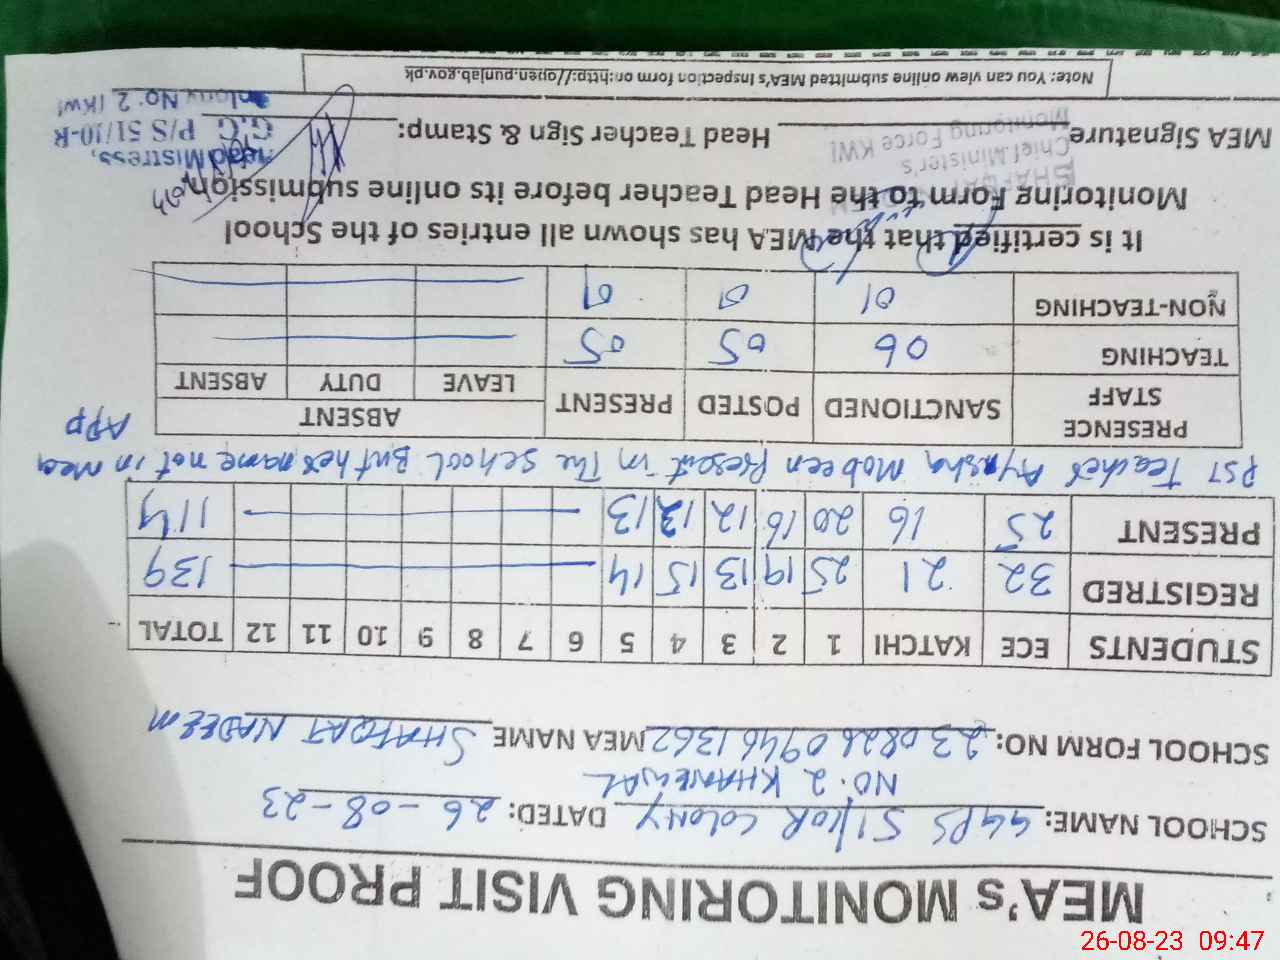 MEA's MONITORING VISIT PROOF
SCHOOL NAME: GGPS 51/10R COLONY DATED: 26-08-23
NO. 2 KHANEWAL
SCHOOL FORM NO: 23082609461362 MEA NAME SHAFQAT NADEEM
STUDENTS ECE KATCHI 1 2 3 4 5 6 7 8 9 10 11 12 TOTAL
REGISTRED 32 21 25 19 13 15 14 139
PRESENT 25 16 20 16 12 12 13 114
PST Teacher Ayesha Mobeen Present in The School But her name not in Mea
App
PRESENCE STAFF SANCTIONED POSTED PRESENT ABSENT
LEAVE DUTY ABSENT
TEACHING 06 05 05
NON-TEACHING 01 01 01
It is certified that the MEA has shown all entries of the School
Monitoring Form to the Head Teacher before its online submission.
MEA Signature Head Teacher Sign & Stamp:
SHAFQAT
Chief Minister's
Monitoring Force KWL
Head Mistress,
G.G. P/S 51/10-R
Colony No: 2 (Kwl
Note: You can view online submitted MEA's Inspection form on:http://open.punjab.gov.pk
26-08-23 09:47